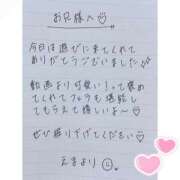 お兄様へ♡
今日は遊びに来てくれて
ありがとうございました
動画より可愛い！って褒め
てくれてフェラも堪能し
てもらえて嬉しいよ〜♡
ぜひ撮り下げてください♡
えまより